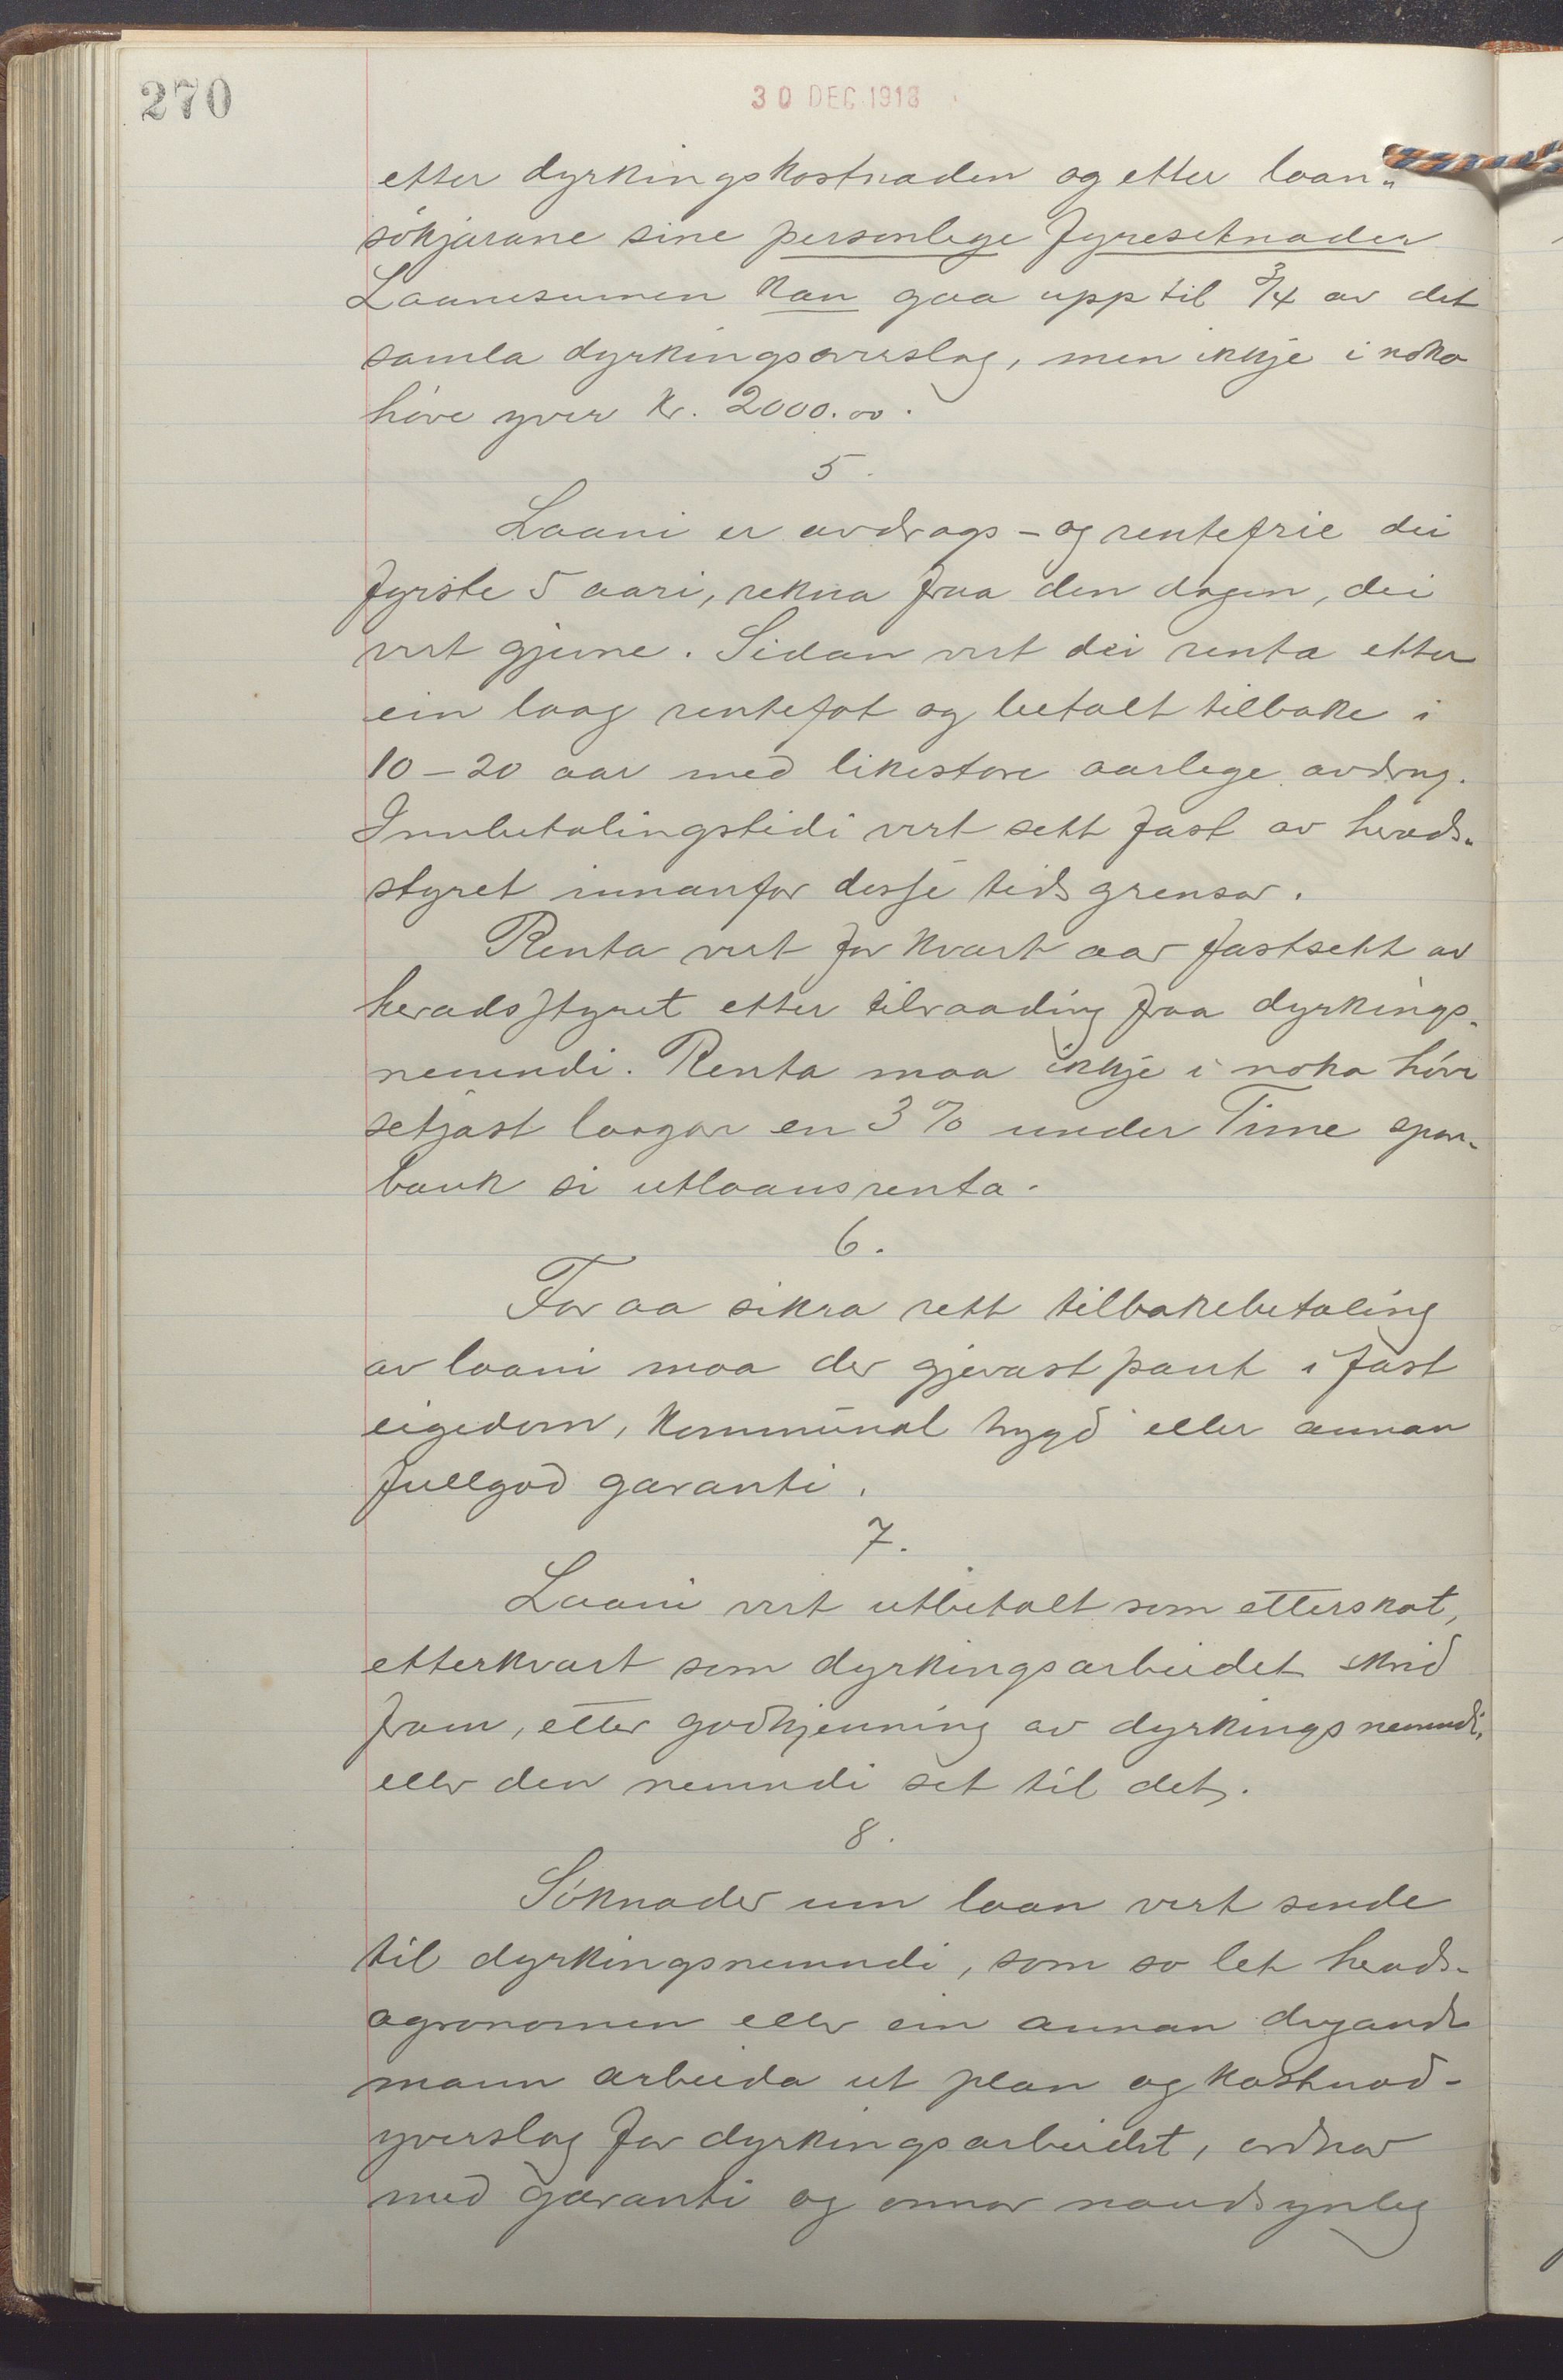 270
30 DEC. 1918
etter dyrkingskostnaden og etter laan-
søkjarane sine personlege fyresetnader
Laanesumen kan gaa upp til 3/4 av det
samla dyrkingsoverslag, men ikkje i noko
høve yver kr. 2000.00.
5.
Laani er avdrags- og rentefrie dei
fyrste 5 aari, rekna fraa den dagen, dei
vert gjevne. Sidan vert dei renta etter
ein laag rentefot og betalt tilbake i
10-20 aar med likestore aarlege avdrag.
Innbetalingstidi vert sett fast av herads-
styret innanfor desse tidsgrensor.
Renta vert for kvart aar fastsett av
heradsstyret etter tilraading fraa dyrkings-
nemndi. Renta maa ikkje i noko høve
setjast laagar en 3% under Time spar-
bank si utlaansrenta.
6.
For aa sikra rett tilbakebetaling
av laani maa der gjevast pant i fast
eigedom, kommunal trygd eller annan
fullgod garanti.
7.
Laani vert utbetalt som etterskot,
etterkvart som dyrkingsarbeidet skrid
fram, etter godkjenning av dyrkingsnemndi,
eller den nemndi set til det.
8.
Søknader um laan vert sende
til dyrkingsnemndi, som so let herads-
agronomen eller ein annan dugande
mann arbeida ut plan og kostnad-
yverslag for dyrkingsarbeidet, ordnar
med garanti og onnor naudsynleg